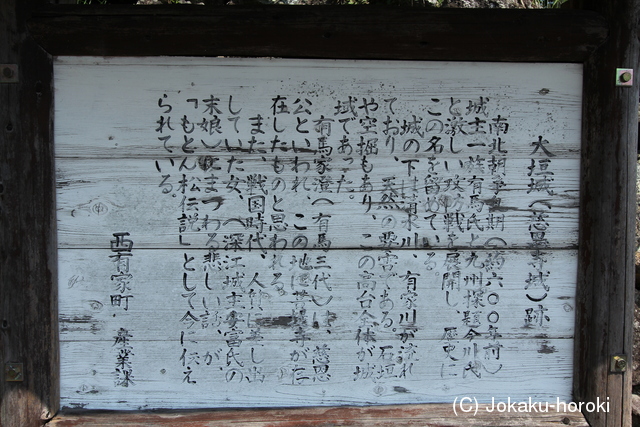 大垣城（慈恩寺城）跡
南北朝争乱期（約六〇〇年前）
城主一族有馬氏と九州探題今川氏
と激しい攻防戦を展開し、歴史に
この名を留めている。
城の下は有家川が流れ
ており、天然の要害である。石垣
や空堀もあり、この高台全体が城
域であった。
有馬家澄（有馬三代）は、慈恩
公といわれ、この地に慈恩寺がた
在したものと思われる。
また、戦国時代、人質に差し出
していた女、（深江城主安富氏の
末娘）にまつわる悲しい話が、
「もとん松伝説」として今に伝え
られている。
西有家町 産業課
(C) Jokaku-horoki